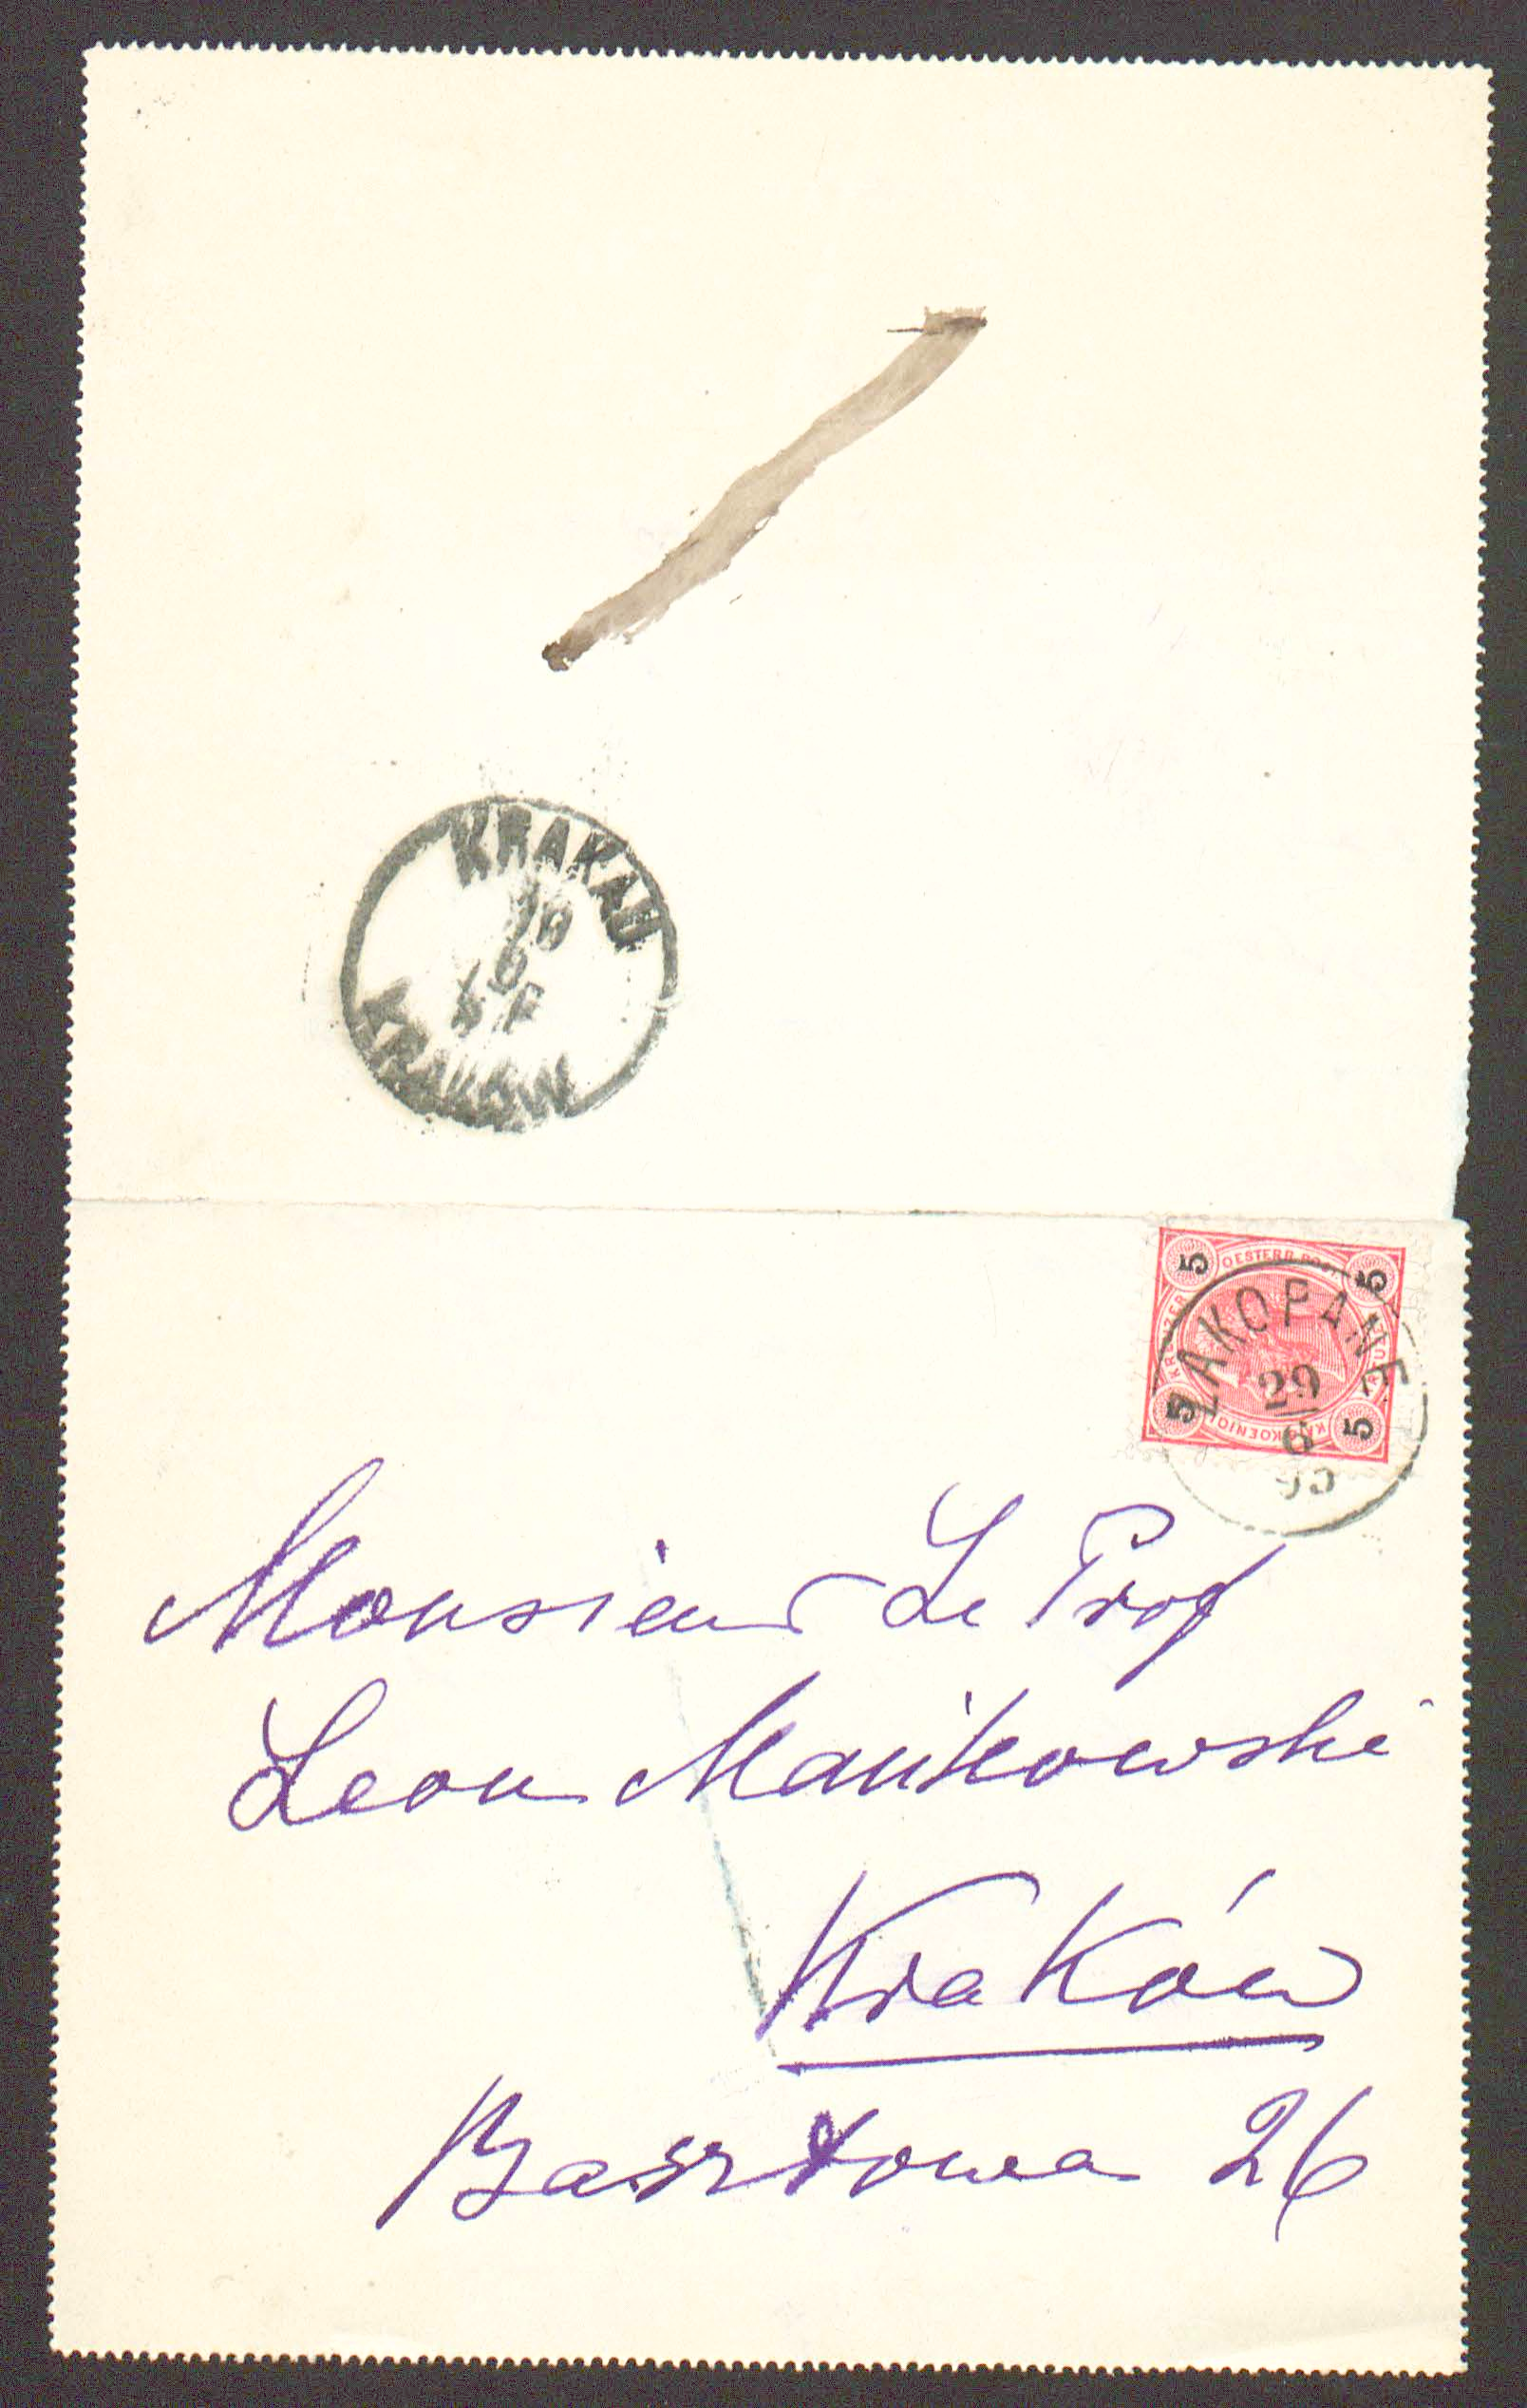 KRAKAU
KRAKÓW
5 OESTERR. POST. 5
KREUZER
5 5
ZAKOPANE
29
6
95
Monsieur Le Prof
Leon Mańkowski
Kraków
Basztowa 26